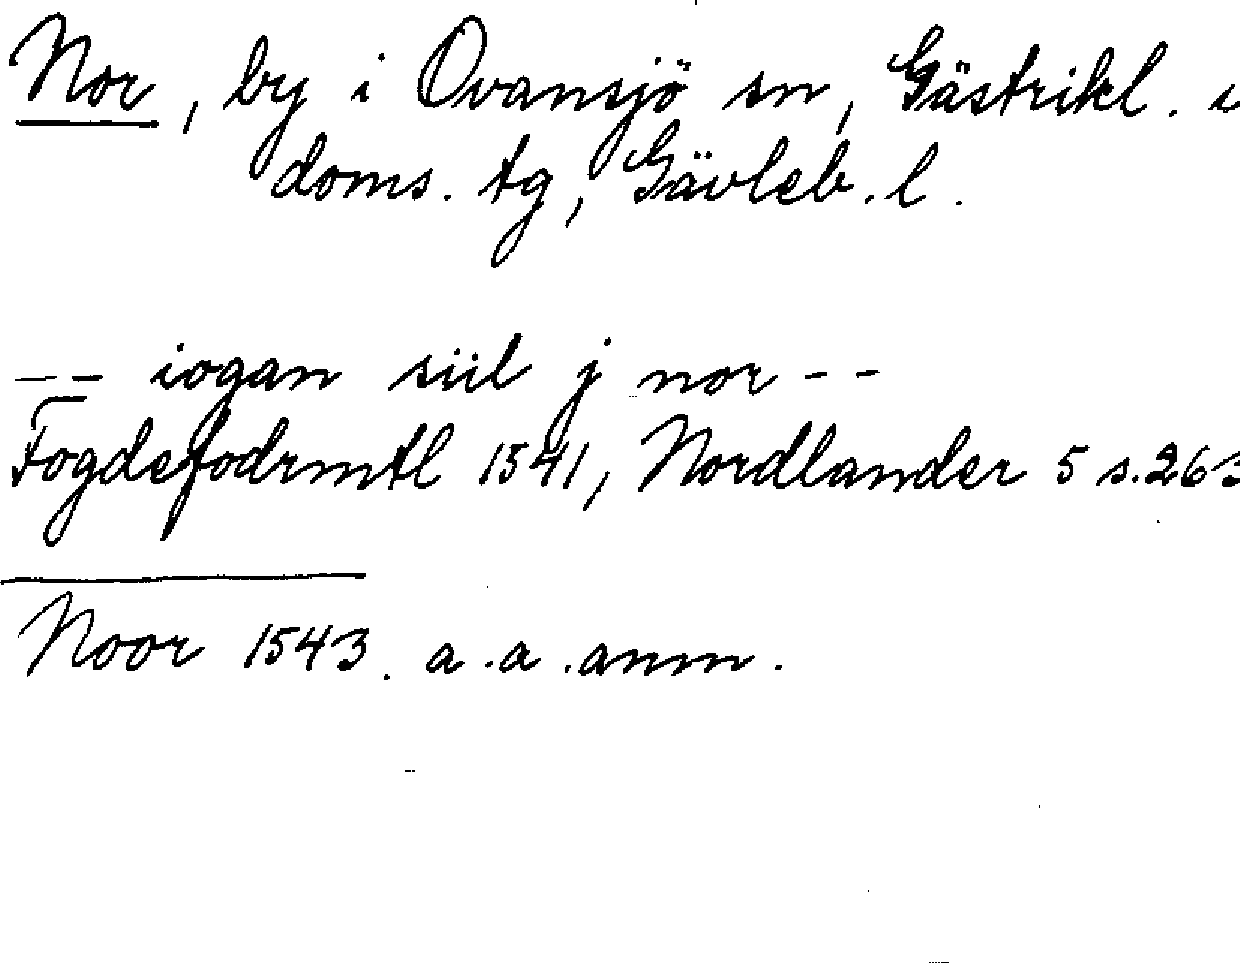 Nor, by i Ovansjö sn, Gästrikl.
doms. tg, Gävleb. l.
-- iogan siil j nor --
Fogdefodrmtl 1541, Nordlander 5 s. 263
Noor 1543. a. a. anm.